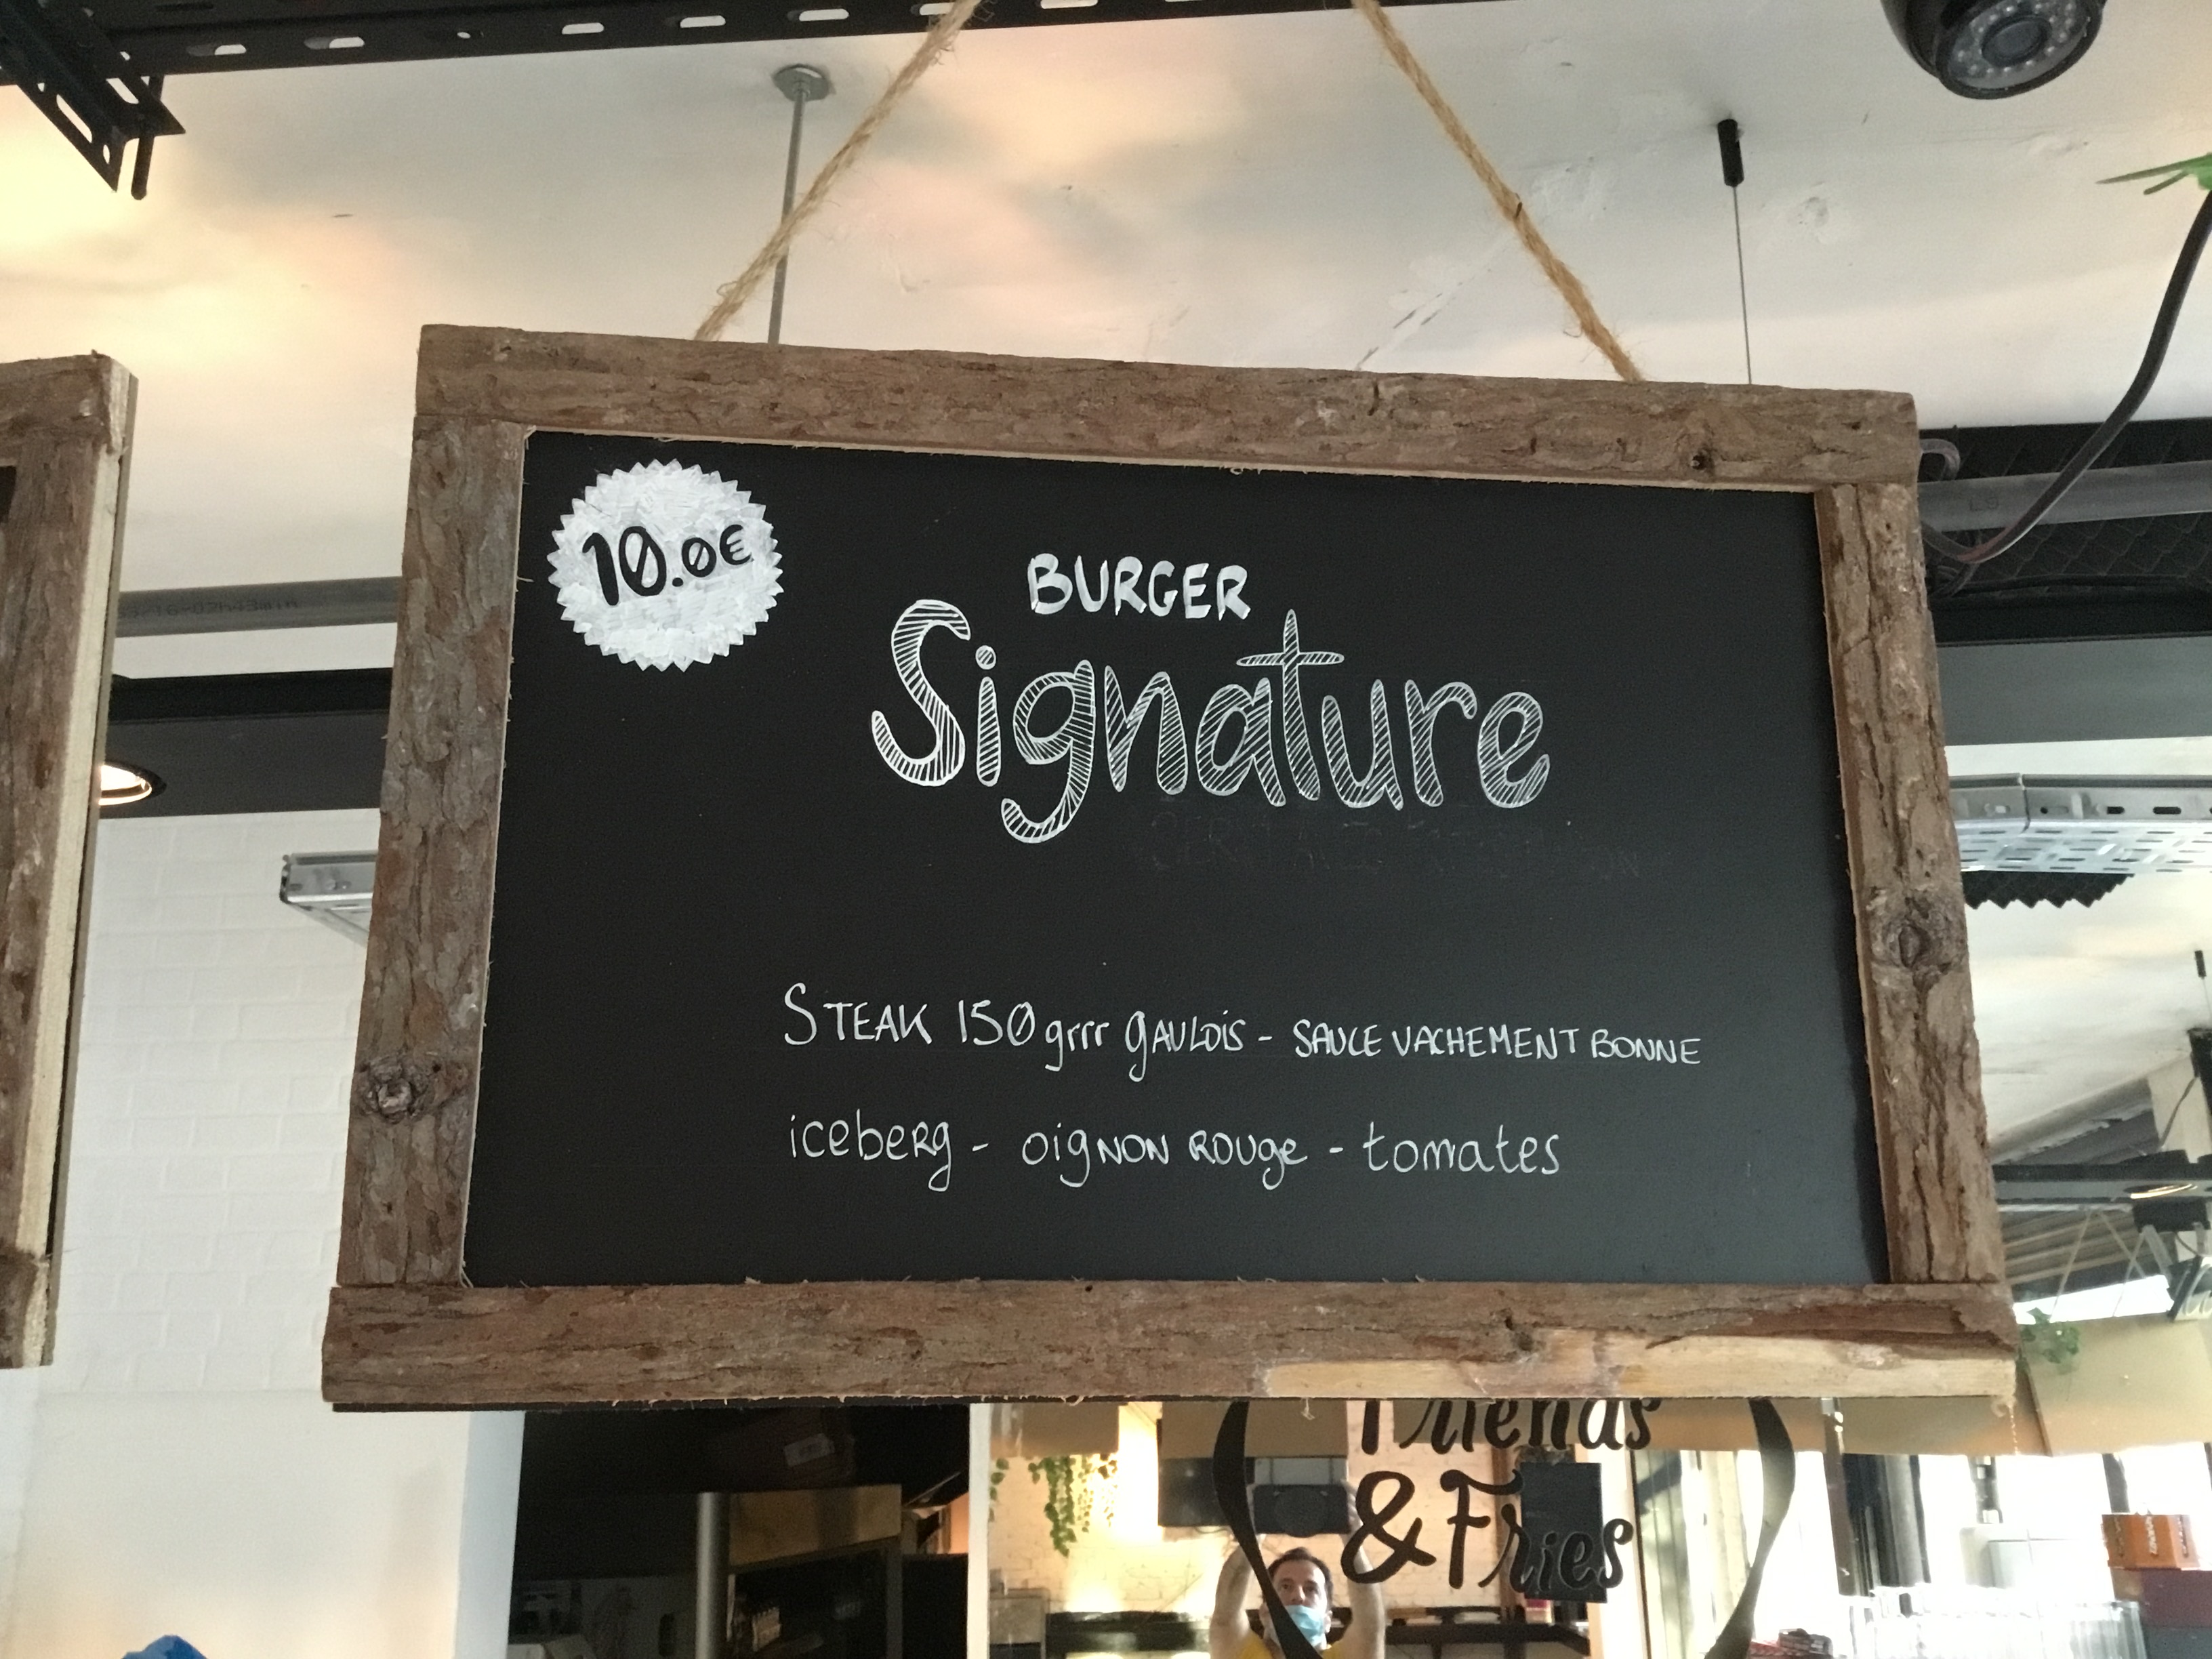 10.0€
BURGER
Signature
STEAK 150 grrr gAULOiS - SAUCE VACHEMENT BONNE
icebeRg - oigNON ROUge - tomates
Friends
& Fries